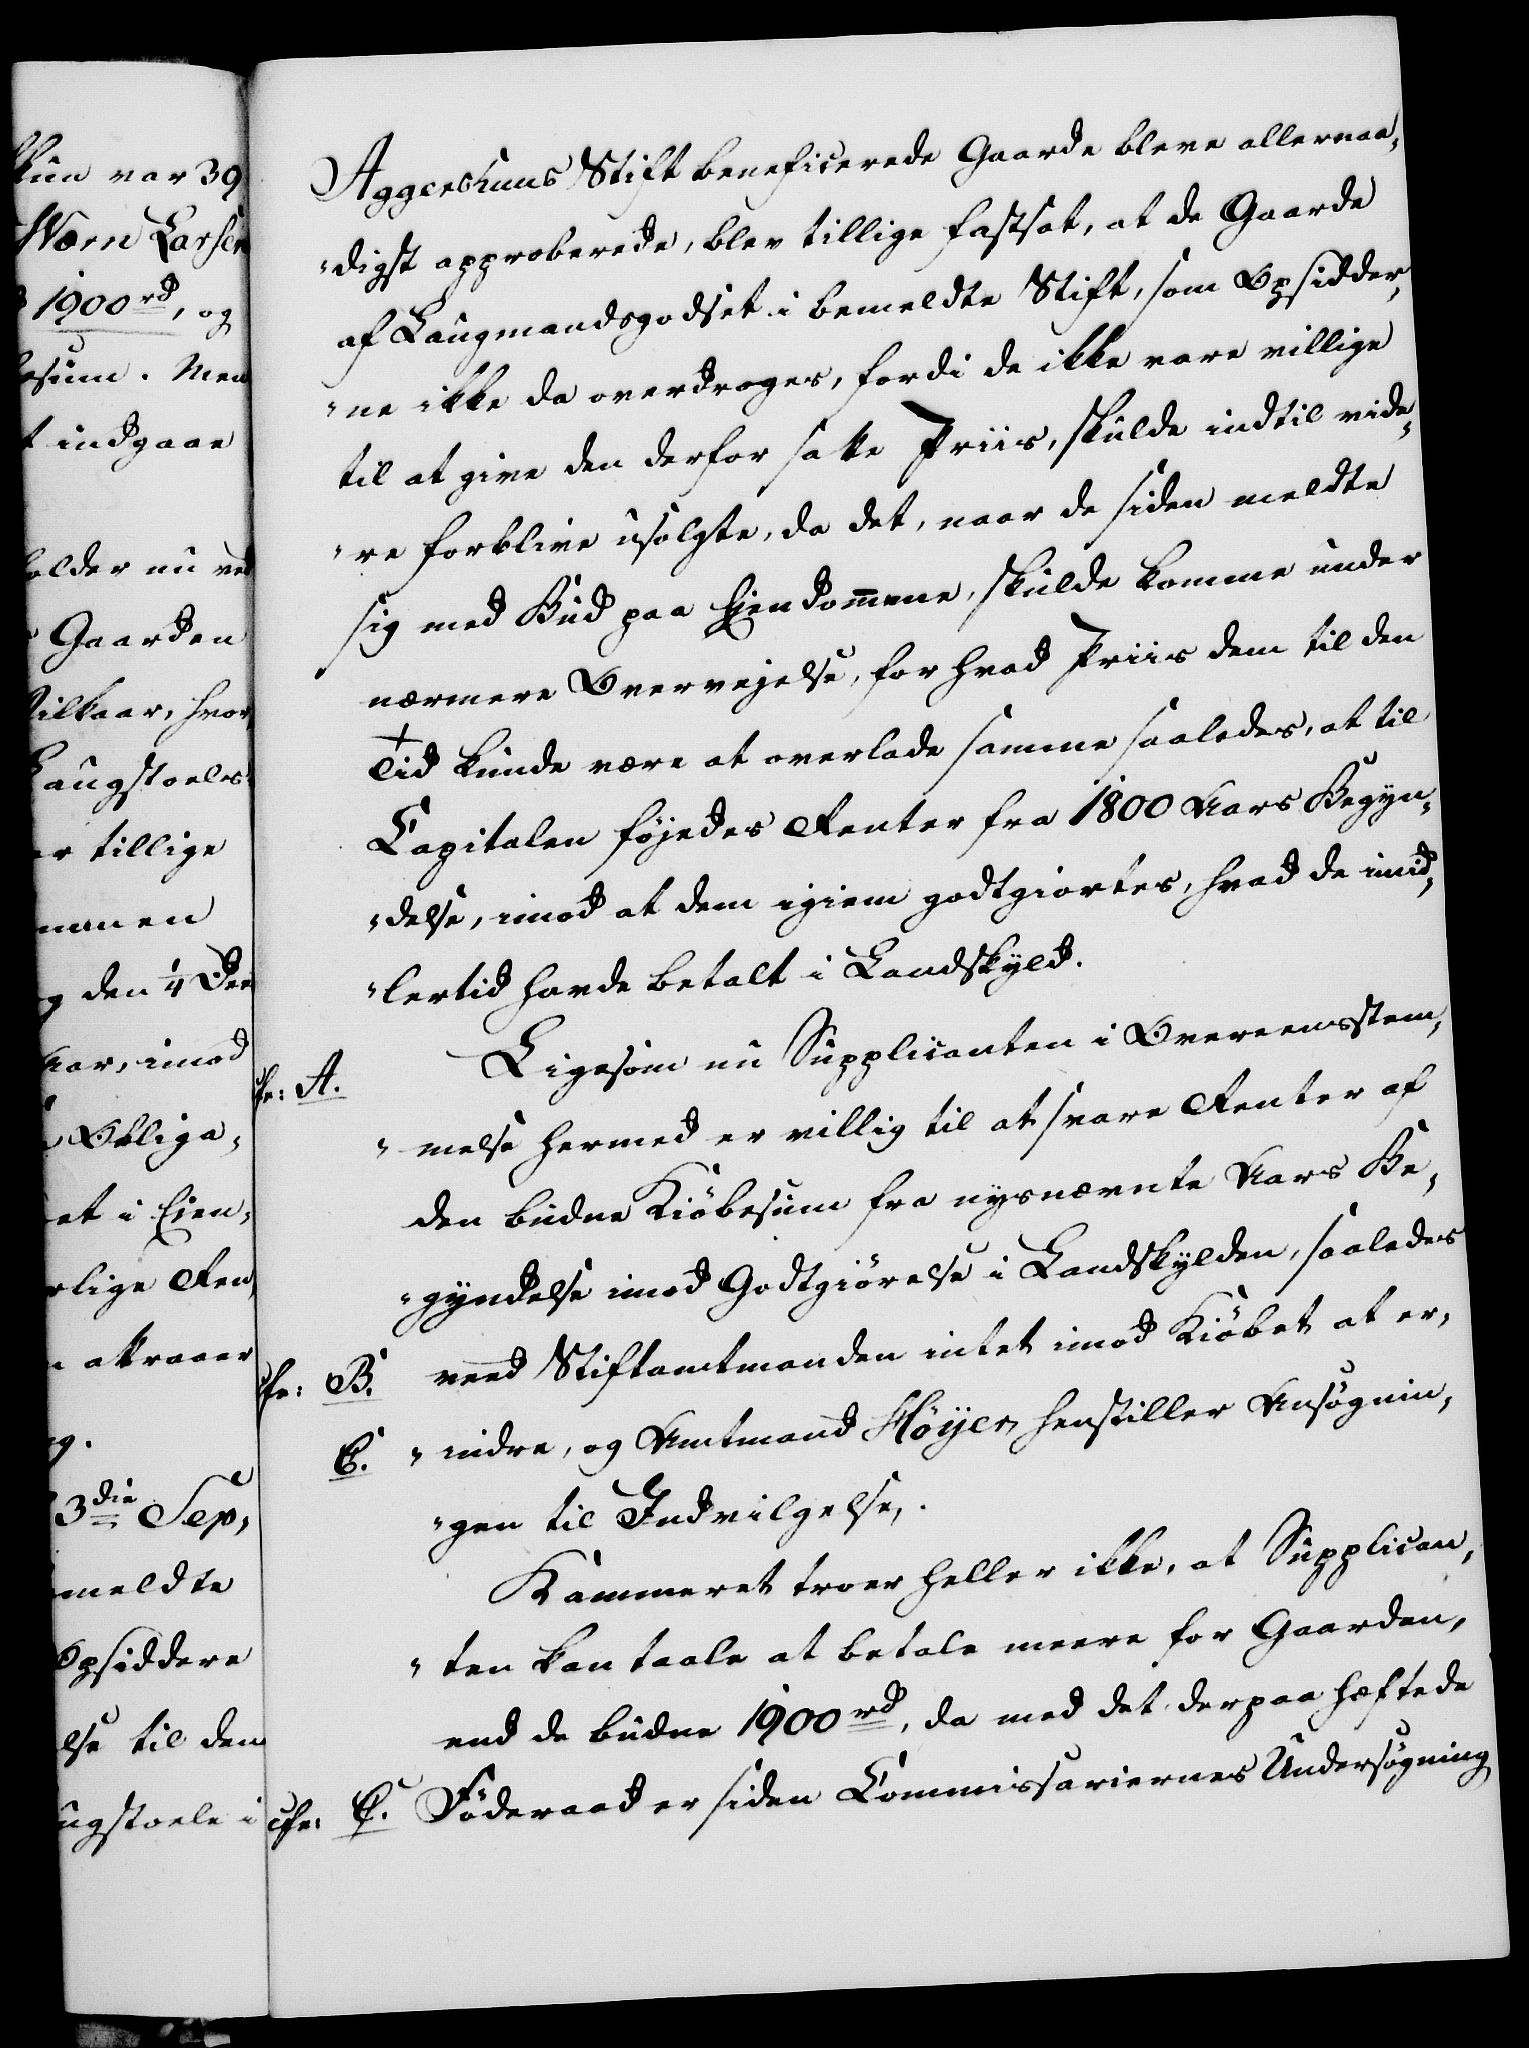 Kun var 39
Næren Larsen
1900 rd, og
sum. Men
t indgaae
holder nu ved
Gaarden
Vilkaar, hvor,
Laugstoels,
er tillige
manen
g den 1/4 Deel
aar, imod
Obliga,
et i Eien,
rlige Ren,
attraaer
g.
3die Sep,
meldte
Opsiddere
lse til dem
ugstoele i
Aggershuus Stift beneficerede Gaarde bleve allernaa,
„digst approberede, blev tillige fastsat, at de Gaarde
af Laugmandsgodset i bemeldte Stift, som Opsidder,
„ne ikke da overdroges, fordi de ikke vare villige
til at give den derfor satte Priis, skulde indtil vide,
„re forblive usolgte, da det, naar de siden meldte
sig med Bud paa Ejendommene, skulde komme under
nærmere Overvejelse, for hvad Priis dem til den
Tid kunde være at overlade samme saaledes, at til
Capitalen föjedes Renter fra 1800 Aars Begyn,
„delse, imod at dem igiem godtgiortes, hvad de imid,
„lertid havde betalt i Landskyld.
cfr: A. Ligesom nu Supplicanten i Overeensstem,
„melse hermed er villig til at svare Renter af
den budne Kiöbesum fra nysnævnte Aars Be,
„gyndelse imod Godtgiörelse i Landskylden, saaledes
cfr: B. veed Stiftamtmanden intet imod Kiöbet at er,
C. „indre, og Amtmand Höyer henstiller Ansögnin,
„gen til Indvilgelse.
Kammeret troer heller ikke, at Supplican,
„ten kan taale at betale meere for Gaarden,
end de budne 1900 rd, da med det derpaa heftede
cfr: C. Föderaad er siden Commissariernes Undersögning